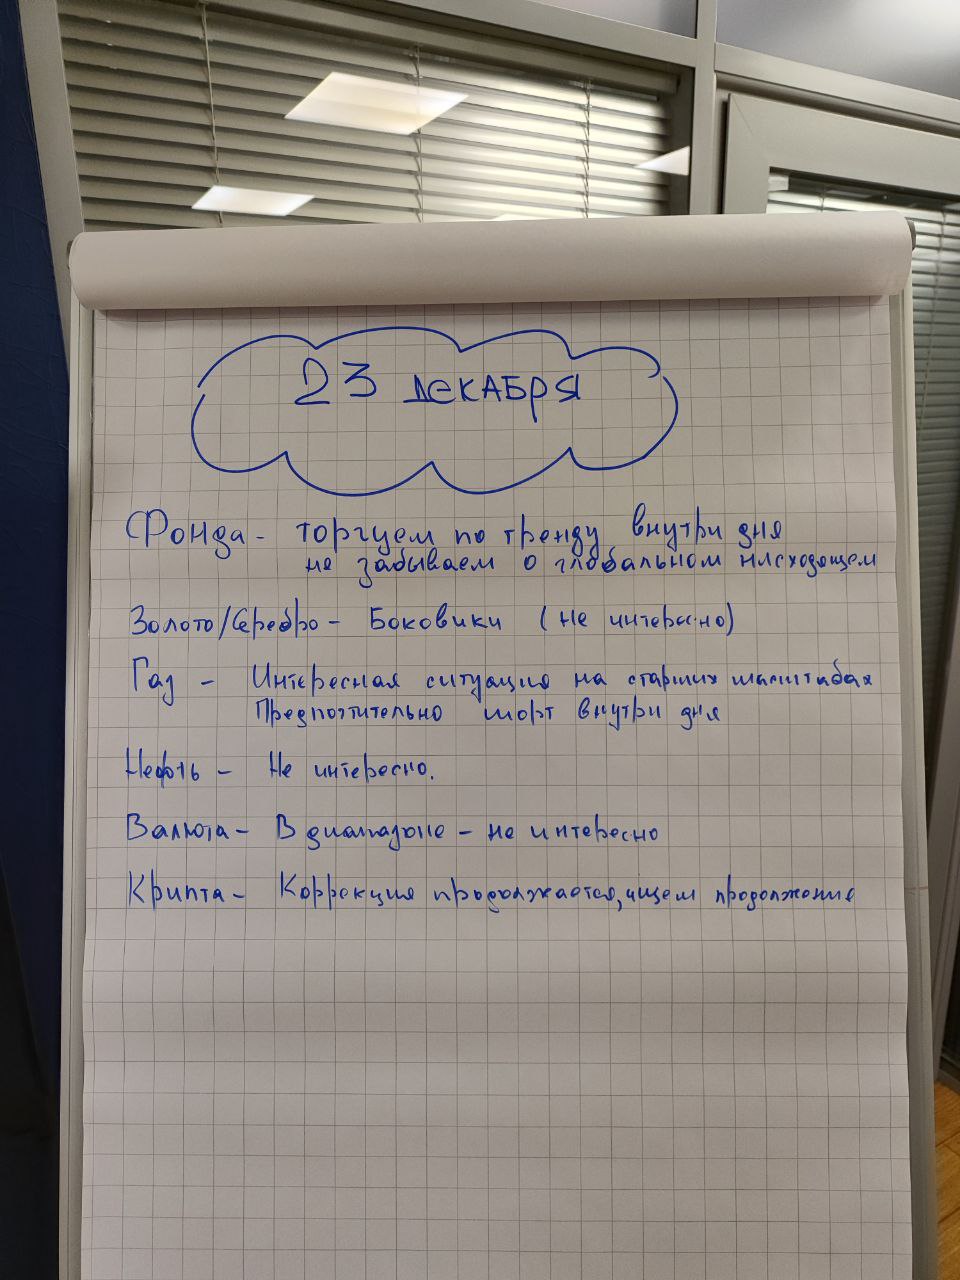 23 ДЕКАБРЯ
Фонда - торгуем по тренду внутри дня
не забываем о глобальном нисходящем
Золото/Серебро - Боковики (не интересно)
Газ - Интересная ситуация на старших масштабах
Предпочтительно шорт внутри дня
Нефть - Не интересно.
Валюта - В диапазоне - не интересно
Крипта - Коррекция продолжается, ищем продолжение